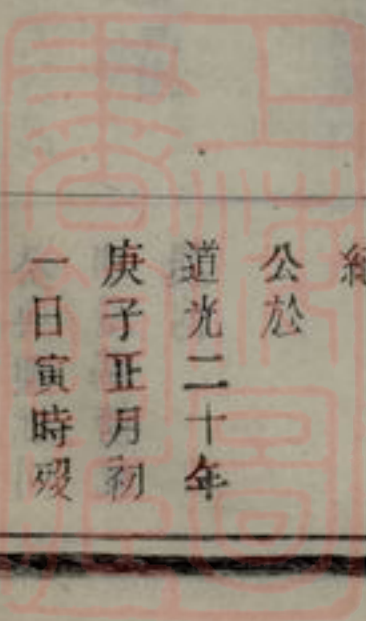 公於
道光二十年
庚子正月初
一日寅時歿